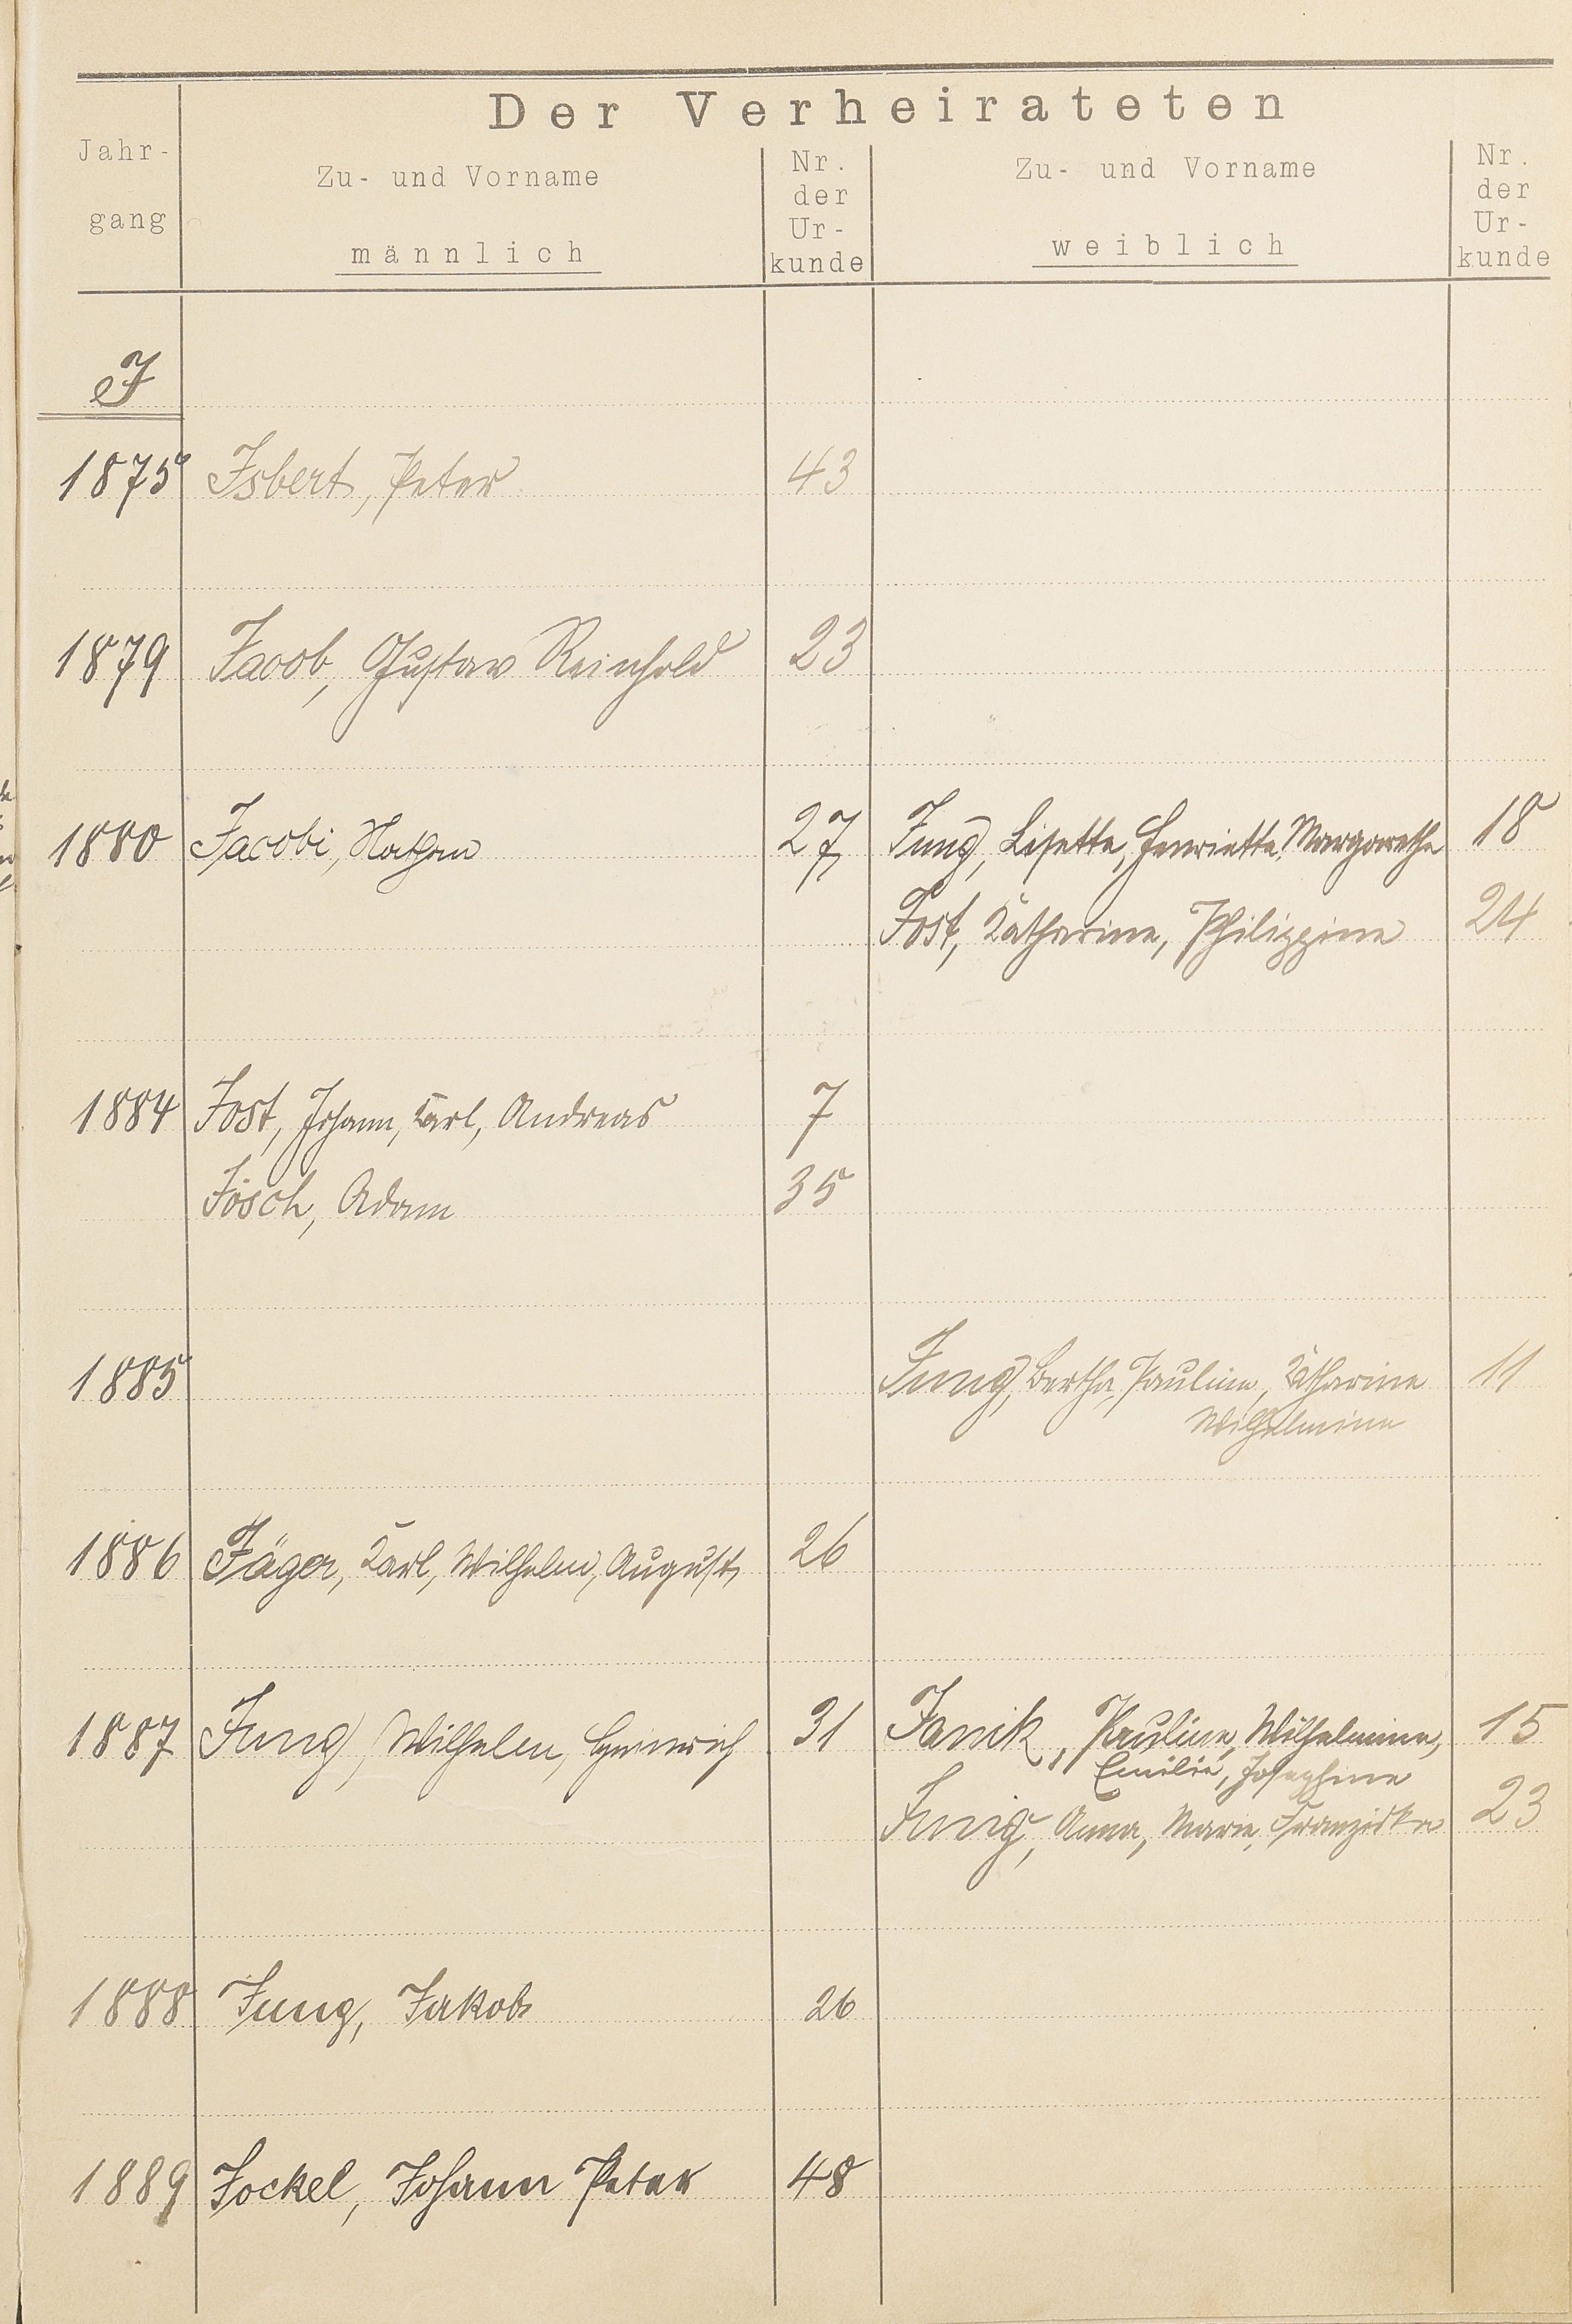 Der Verheirateten
Jahr-
gang
Zu- und Vorname
männlich
Nr.
der
Ur-
kunde
Zu- und Vorname
weiblich
Nr.
der
Ur-
kunde
J
1875 Isbert, Peter 43
1879 Jacob, Gustav Reinhold 23
1880 Jacobi, Nathan 27 Jung, Lisette, Henriette, Margarethe 18
Jost, Katharine, Philippine 24
1884 Jost, Johann, Karl, Andreas 7
Jösch, Adam 35
1885 Jung, Bertha, Pauline, Katharine 11
Wilhelmine
1886 Jäger, Karl, Wilhelm, August 26
1887 Jung, Wilhelm, Heinrich 31 Janik, Pauline, Wilhelmine, 15
Emilie, Josephine
Junig, Anna, Marie, Franziska 23
1888 Jung, Jakob 26
1889 Jockel, Johann Peter 48